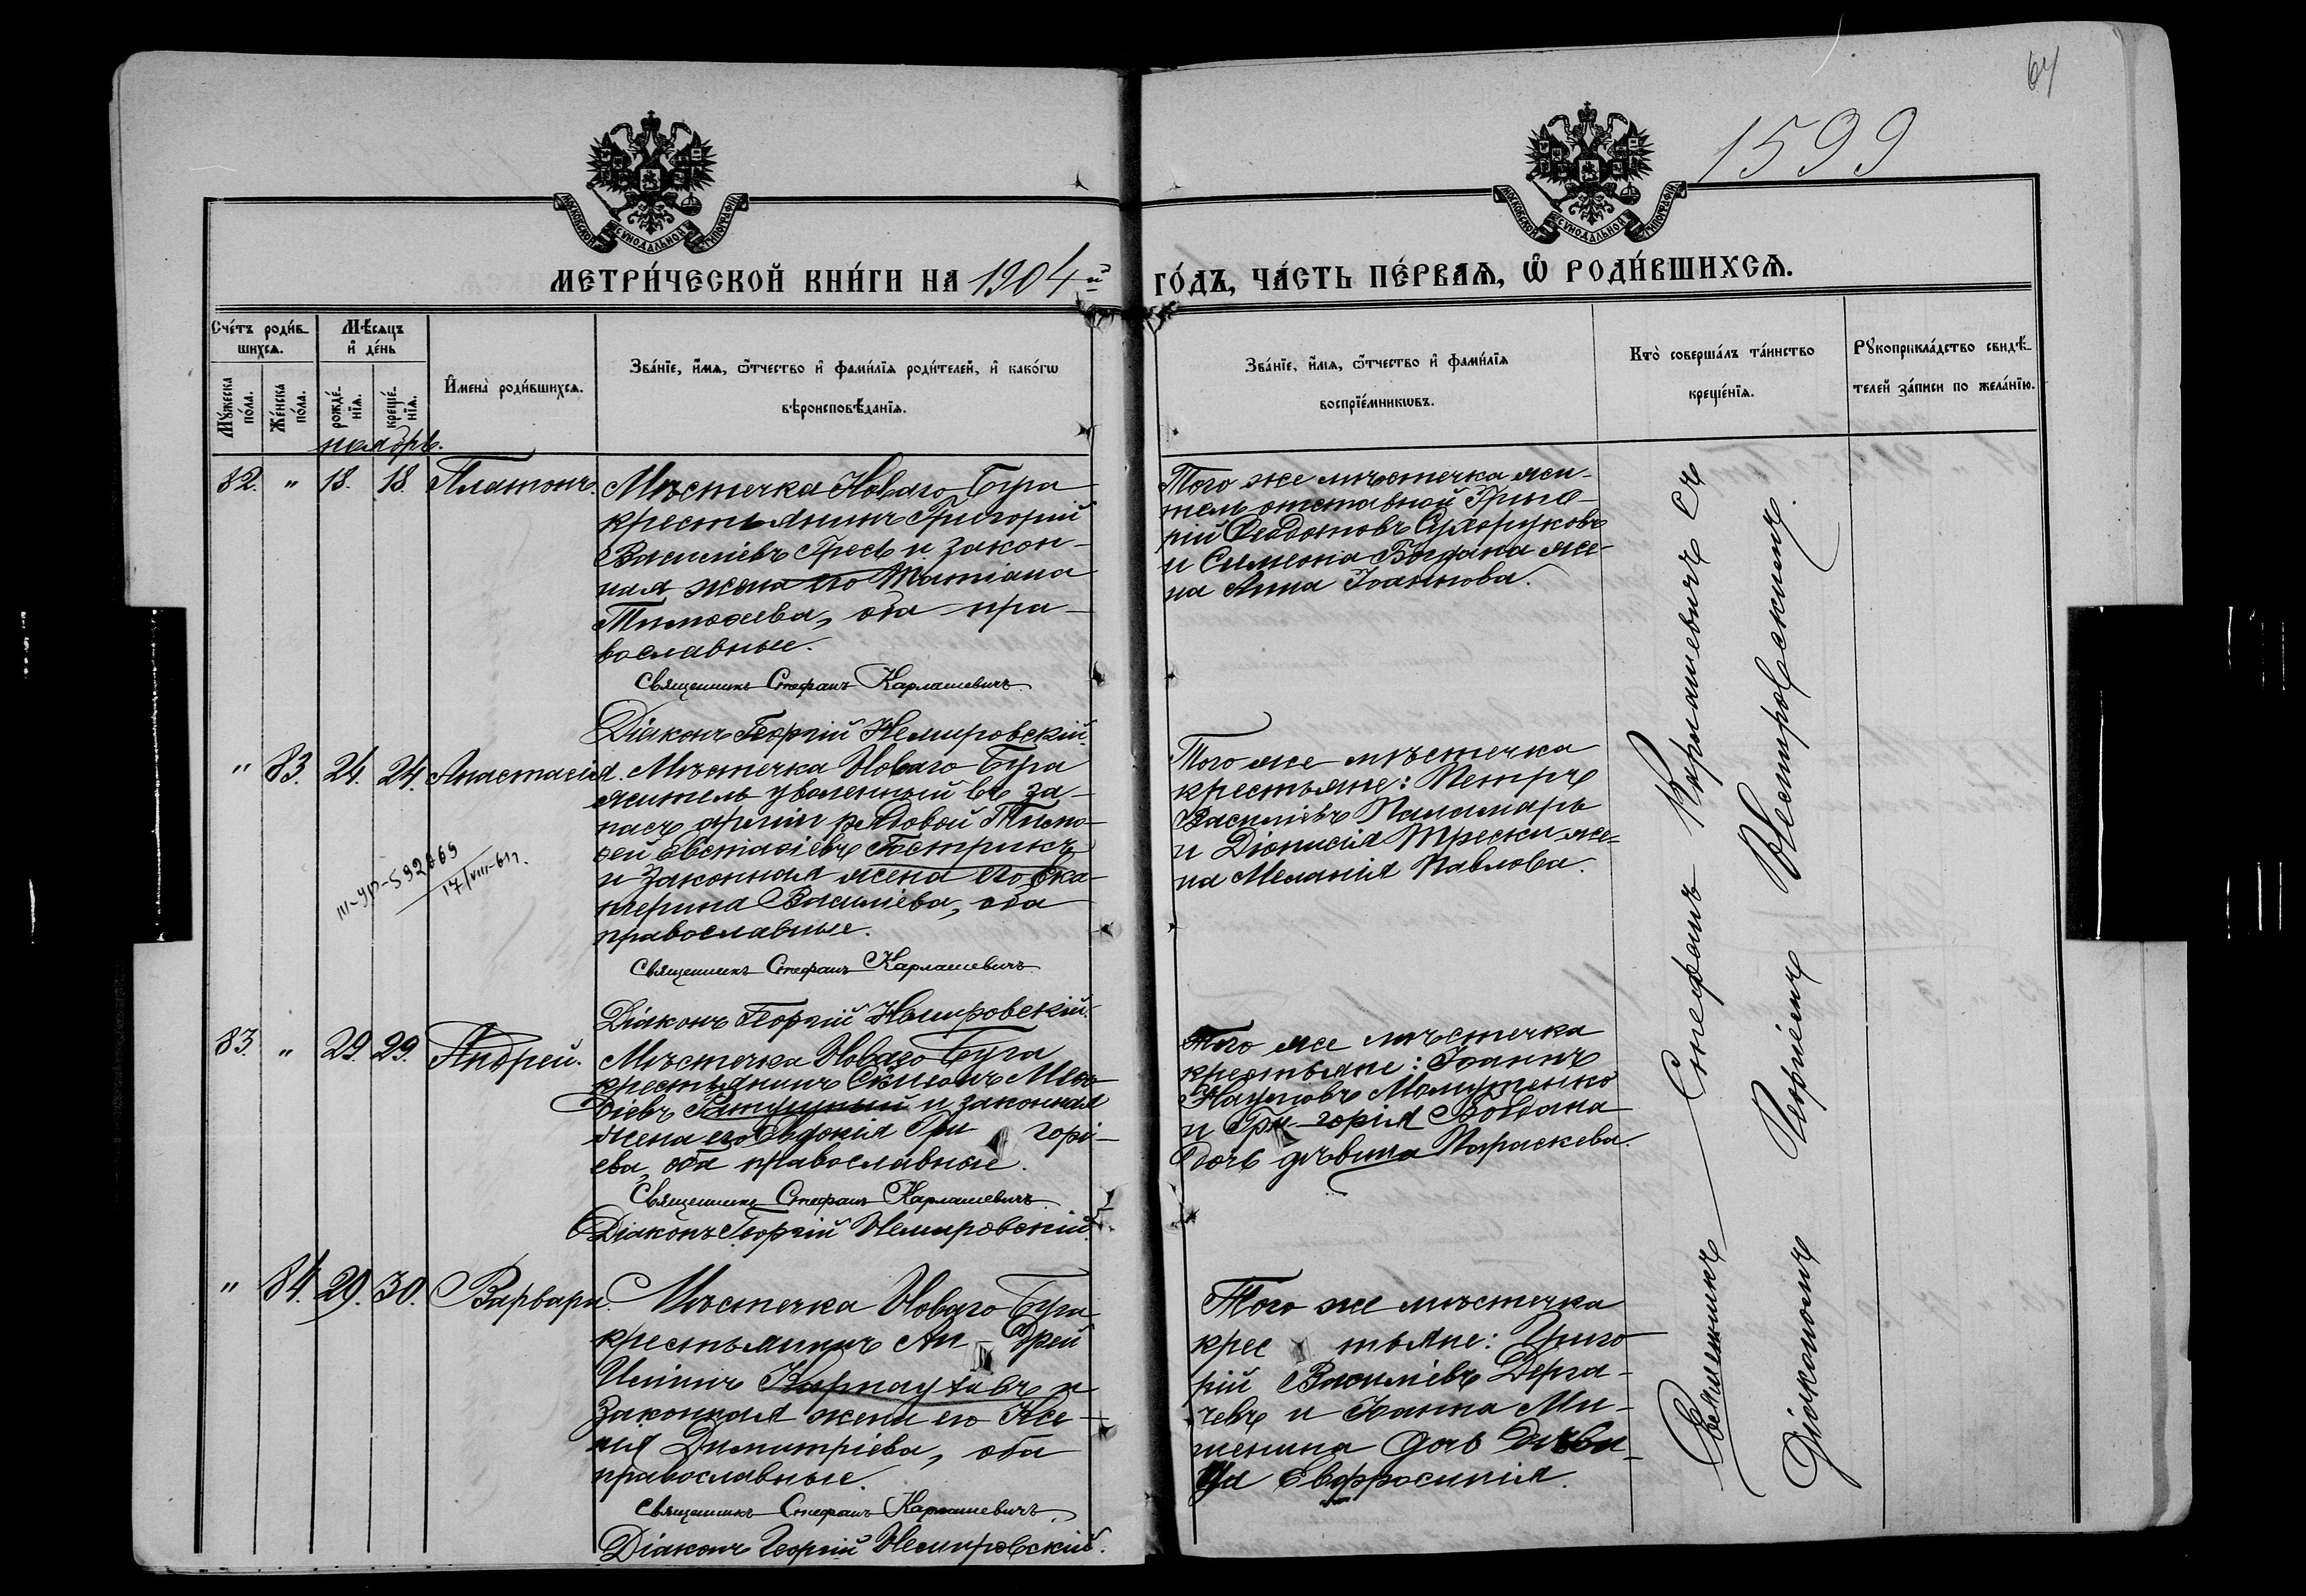 64
1599
МОСКОВСКОЙ СУНОДАЛЬНОЙ ТИПОГРАФІИ
МОСКОВСКОЙ СУНОДАЛЬНОЙ ТИПОГРАФІИ
МЕТРИ́ЧЕСКОЙ КНИ́ГИ НА 1904й ГО́ДЪ, ЧА́СТЬ ПЕ́РВАЯ, Ѿ РОДИ́ВШИХСЯ.
Сче́тъ роди́в-
шихся.
Мѣсяцъ
и де́нь
Мꙋжеска
по́ла.
Же́нска
по́ла.
рожде́-
нія.
креще́-
нія.
Имена̀ роди́вшихся.
Зва́ніе, и́мя, ѻ́тчество и фами́лія роди́телей, и како́гѡ
вѣроисповѣ́данія.
Зва́ніе, и́мя, ѻ́тчество и фами́лія
воспріе́мникѡвъ.
Кто̀ соверша́лъ та́инство
креще́нія.
Рꙋкоприкла́дство свидѣ́-
телей за́писи по жела́нію.
ноябрь.
82. " 18. 18. Платонъ.
Мѣстечка Новаго Буга
крестьянинъ Григорій
Василіевъ Гресь и закон-
ная жена его Татіана
Тимоѳеева, оба пра-
вославные.
Священникъ Стефанъ Карлашевичъ.
Діаконъ Георгій Немировскій.
Того же мѣстечка жи-
тель отставной Григо-
рій Ѳеодотовъ Сухоруковъ
и Симеона Богдана же-
на Анна Іоаннова.
" 83. 24. 24. Анастасія.
Мѣстечка Новаго Буга
житель уволенный въ за-
пасъ арміи рядовой Тимо-
ѳей Евстафіевъ
и законная жена его Ека-
терина Василіева, оба
православные.
Священникъ Стефанъ Карлашевичъ
Діаконъ Георгій Немировскій.
III-УР-592069
17/VIII-61г.
Того же мѣстечка
крестьяне: Петръ
Василіевъ Паламарь
и Діонисія Трески же-
на Меланія Павлова.
83. " 29. 29. Андрей.
Мѣстечка Новаго Буга
крестьянинъ Меѳо-
діевъ и законная
жена его Евдокія Гри горі-
ева, оба православные.
Священникъ Стефанъ Карлашевичъ
Діаконъ Георгій Немировскій.
Того же мѣстечка
крестьяне: Іоаннъ
Наумовъ
и Гри-горія
дочь дѣвица Параскева.
" 84. 29. 30. Варвара.
Мѣстечка Новаго Буга
крестьянинъ Ан-дрей
Ильинъ Карнауховъ и
законная жена его Ксе-
нія Димитріева, оба
православные.
Священникъ Стефанъ Карлашевичъ.
Діаконъ Георгій Немировскій.
Того же мѣстечка
крес тьяне: Григо-
рій Василіевъ Дерга-
чевъ и Іоанна Ми-
шенина дочь дѣви-
ца Евфросинія.
Священникъ Стефанъ Карлашевичъ съ
Діакономъ Георгіемъ Немировскимъ.